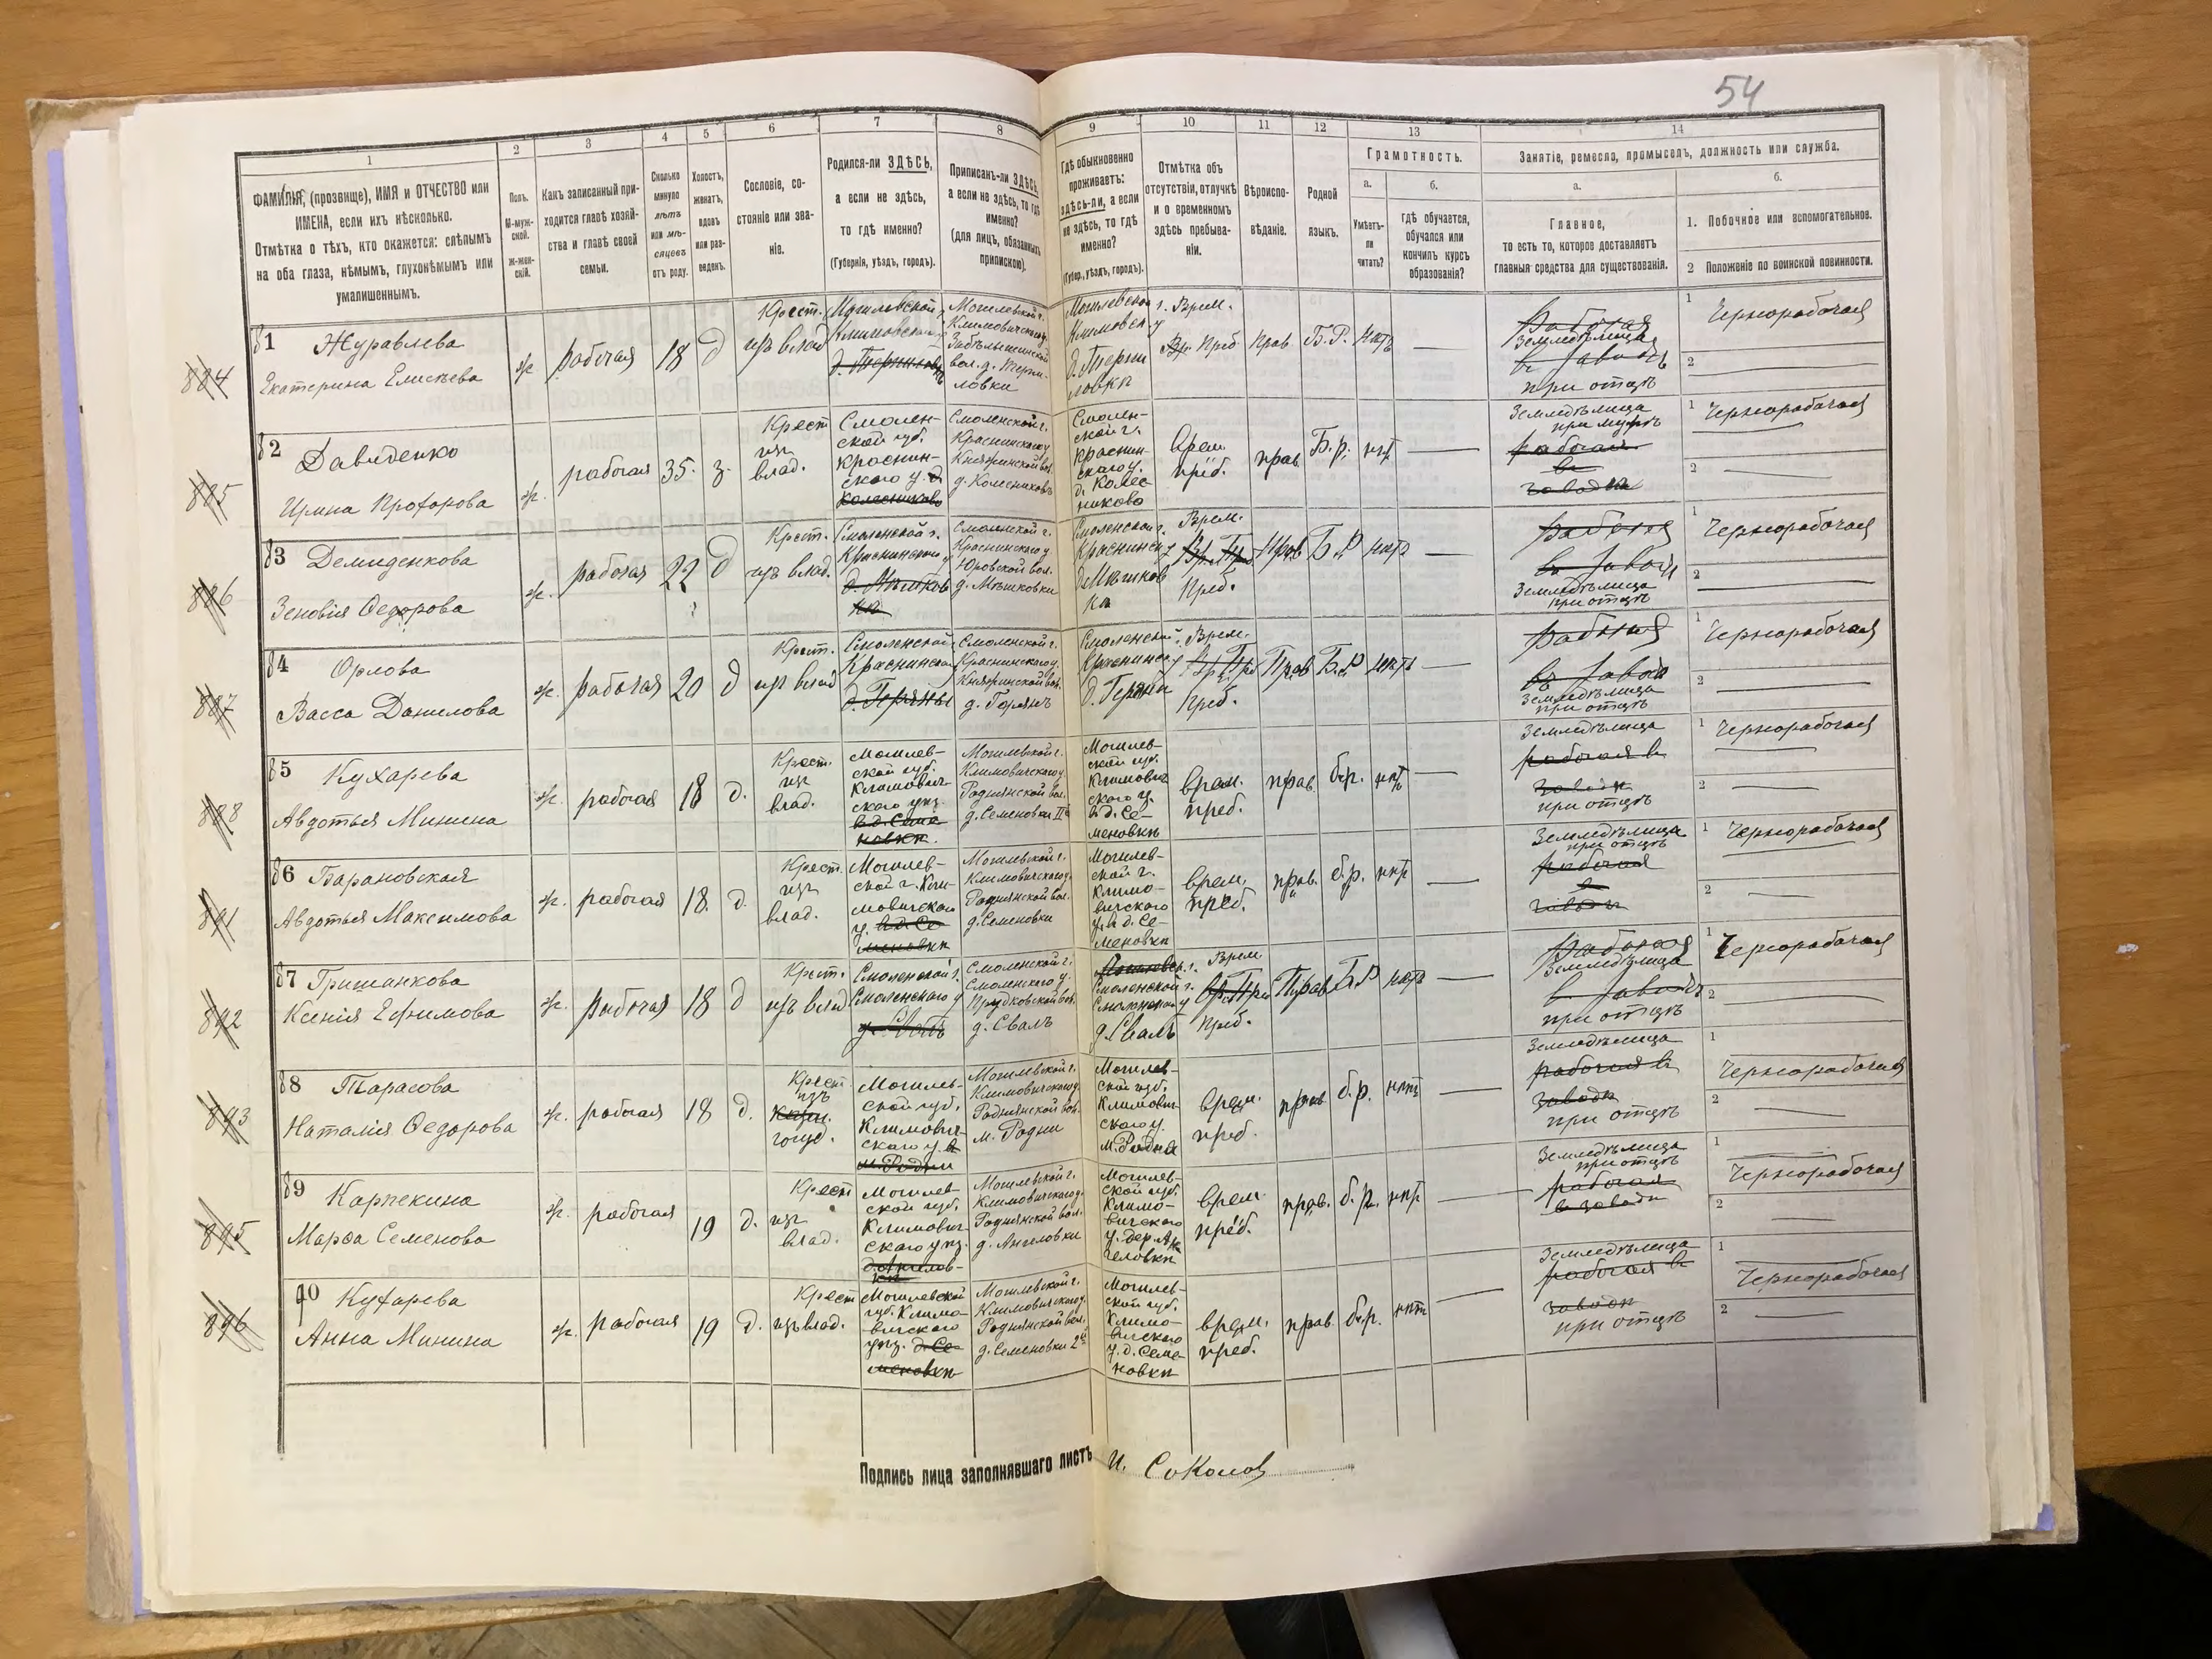 54
1
2
3
4
5
6
7
8
9
10
11
12
13
14
ФАМИЛІЯ, (прозвище), ИМЯ и ОТЧЕСТВО или
ИМЕНА, если ихъ нѣсколько.
Отмѣтка о тѣхъ, кто окажется: слѣпымъ
на оба глаза, нѣмымъ, глухонѣмымъ или
умалишеннымъ.
Полъ.
М-муж-
ской.
Ж-жен-
скій.
Какъ записанный при-
ходится главѣ хозяй-
ства и главѣ своей
семьи.
Сколько
минуло
лѣтъ
или мѣ-
сяцевъ
отъ роду.
Холостъ,
женатъ,
вдовъ
или раз-
веденъ.
Сословіе, со-
стояніе или зва-
ніе.
Родился-ли ЗДѢСЬ,
а если не здѣсь,
то гдѣ именно?
(Губернія, уѣздъ, городъ).
Приписанъ-ли ЗДѢСЬ,
а если не здѣсь, то гдѣ
именно?
(для лицъ, обязанныхъ
припискою).
Гдѣ обыкновенно
проживаетъ:
здѣсь-ли, а если
не здѣсь, то гдѣ
именно?
(Губер., уѣздъ, городъ).
Отмѣтка объ
отсутствіи, отлучкѣ
и о временномъ
здѣсь пребыва-
ніи.
Вѣроиспо-
вѣданіе.
Родной
языкъ.
Грамотность.
а.
б.
Умѣетъ-
ли
читать?
гдѣ обучается,
обучался или
кончилъ курсъ
образованія?
Занятіе, ремесло, промыселъ, должность или служба.
а.
б.
Главное,
то есть то, которое доставляетъ
главныя средства для существованія.
1. Побочное или вспомогательное.
2 Положеніе по воинской повинности.
884
81 Журавлева
Екатерина Елисѣева
ж
рабочая
18
д
Крест.
изъ влад
Могилевской г.
Климовск. у
д. Тернилов
Могилевской г.
Климовичскаго у.
Забѣлышинской
вол. д. Терни-
ловки
Могилевской г.
Климовск. у
д. Терни
ловки
Врем.
Вр. Преб
Прав
Б.Р.
нѣтъ
—
Рабочая
Земледѣлица
въ заводѣ
при отцѣ
1 Чернорабочая
2 —
885
82 Давиденко
Ирина Прохорова
ж.
рабочая
35.
з.
Крест
изъ
влад.
Смолен-
ской губ.
Краснин-
скаго у. д.
Колесниково
Смоленской г.
Краснинскаго у
Княжинской вол.
д. Колесниковъ
Смолен-
ской г.
Краснин-
скаго у.
д. Колес
никово
врем.
преб.
прав.
Б.р.
нѣт
—
Земледѣлица
при мужѣ
рабочая
въ
заводѣ
1 Чернорабочая
2 —
886
83 Демиденкова
Зеновія Ѳедорова
ж.
рабочая
22
д
Крест.
изъ влад.
Смоленской г.
Краснинскаго у
д. Мѣшков
ка
Смоленской г.
Краснинскаго у.
Юровской вол.
д. Мѣшковки
Смоленской г.
Краснинск. у
д. Мѣшков
ка
Врем.
Вр. Пр
Преб.
Прав
Б.Р
нѣтъ
—
Рабочая
въ заводѣ
Земледѣлица
при отцѣ
1 Чернорабочая
2 —
887
84 Орлова
Васса Данилова
ж.
рабочая
20
д
Крест.
изъ влад
Смоленской г.
Краснинскаго у
д. Геряны
Смоленской г.
Краснинскаго у.
Княжинской вол.
д. Горянъ
Смоленской г.
Краснинск. у
д. Геряны
Врем.
Вр. Пр
Преб.
Прав
Б.Р
нѣтъ
—
Рабочая
въ заводѣ
Земледѣлица
при отцѣ
1 Чернорабочая
2 —
888
85 Кухарева
Авдотья Минина
ж.
рабочая
18
д.
Крест.
изъ
влад.
Могилев-
ской губ.
Климович-
скаго уѣз.
в д. Семе
новкѣ.
Могилевской г.
Климовичскаго у.
Роднянской вол.
д. Семеновки II
Могилев-
ской губ.
Климович
скаго у.
в д. Се-
меновкѣ
врем.
преб.
прав.
б.р.
нѣт
—
Земледѣлица
рабочая въ
заводѣ
при отцѣ
1 Чернорабочая
2 —
891
86 Барановская
Авдотья Максимова
ж.
рабочая
18.
д.
Крест.
изъ
влад.
Могилев-
ской г. Кли-
мовичскаго
у. в д. Се
меновкѣ
Могилевской г.
Климовичскаго у.
Роднянской вол.
д. Семеновки
Могилев-
ской г.
Климо-
вичскаго
у. в д. Се-
меновкѣ
врем.
преб.
прав.
б.р.
нѣт
—
Земледѣлица
при отцѣ
рабочая
въ
заводѣ
1 Чернорабочая
2 —
892
87 Гришанкова
Ксенія Ефимова
ж.
рабочая
18
д
Крест.
изъ влад
Смоленской г.
Смоленскаго у
д. Свалъ
Смоленской г.
Смоленскаго у.
Прудковской вол.
д. Свалъ
Смоленской г.
Смоленскаго у
д. Свалъ
Врем
Вр. Пр
Преб.
Прав
Б.Р
нѣтъ
—
Рабочая
Земледѣлица
въ заводѣ
при отцѣ
1 Чернорабочая
2 —
893
88 Тарасова
Наталія Ѳедорова
ж.
рабочая
18
д.
Крест
изъ
госуд.
Могилев-
ской губ.
Климович-
скаго у. в
м. Родни
Могилевской г.
Климовичскаго у.
Роднянской вол.
м. Родни
Могилев-
ской губ.
Климович
скаго у.
м. Родня
врем.
преб.
прав
б.р.
нѣт
—
Земледѣлица
рабочая въ
заводѣ
при отцѣ
1
Чернорабочая
2 —
895
89 Карпекина
Марѳа Семенова
ж.
рабочая
19
д.
Крест
изъ
влад.
Могилев-
ской губ.
Климович-
скаго уѣз.
д. Ангелов-
кѣ
Могилевской г.
Климовичскаго у.
Роднянской вол.
д. Ангеловки
Могилев-
ской губ.
Климо-
вичскаго
у. дер. Ан
геловкѣ
врем.
преб.
прав.
б.р.
нѣт
—
Земледѣлица
при отцѣ
рабочая
в заводѣ
1
Чернорабочая
2 —
896
90 Кухарева
Анна Минина
ж.
рабочая
19
д.
Крест
изъ влад.
Могилевской
губ. Климо-
вичскаго
уѣз. д. Се-
меновкѣ
Могилевской г.
Климовичскаго у.
Роднянской вол.
д. Семеновки 2й
Могилев-
ской губ.
Климо-
вичскаго
у. д. Семе-
новкѣ
врем.
преб.
прав.
б.р.
нѣт
—
Земледѣлица
рабочая въ
заводѣ
при отцѣ
1
Чернорабочая
2 —
Подпись лица заполнявшаго листъ И. Соколов